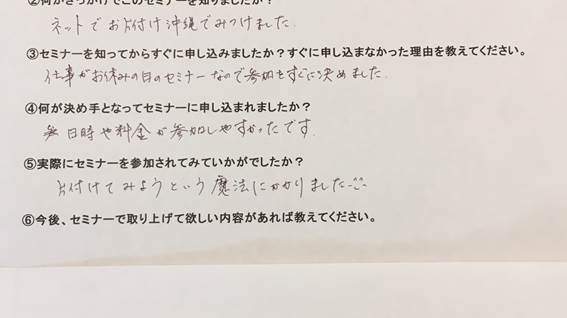 ②何がきっかけでこのセミナーを知りましたか？
ネットでお片付け沖縄でみつけました.
③セミナーを知ってからすぐに申し込みましたか？すぐに申し込まなかった理由を教えてください。
仕事がお休みの日のセミナーなので参加をすぐに決めました.
④何が決め手となってセミナーに申し込まれましたか？
日時や料金が参加しやすかったです.
⑤実際にセミナーを参加されてみていかがでしたか？
片付けてみようという魔法にかかりました
⑥今後、セミナーで取り上げて欲しい内容があれば教えてください。